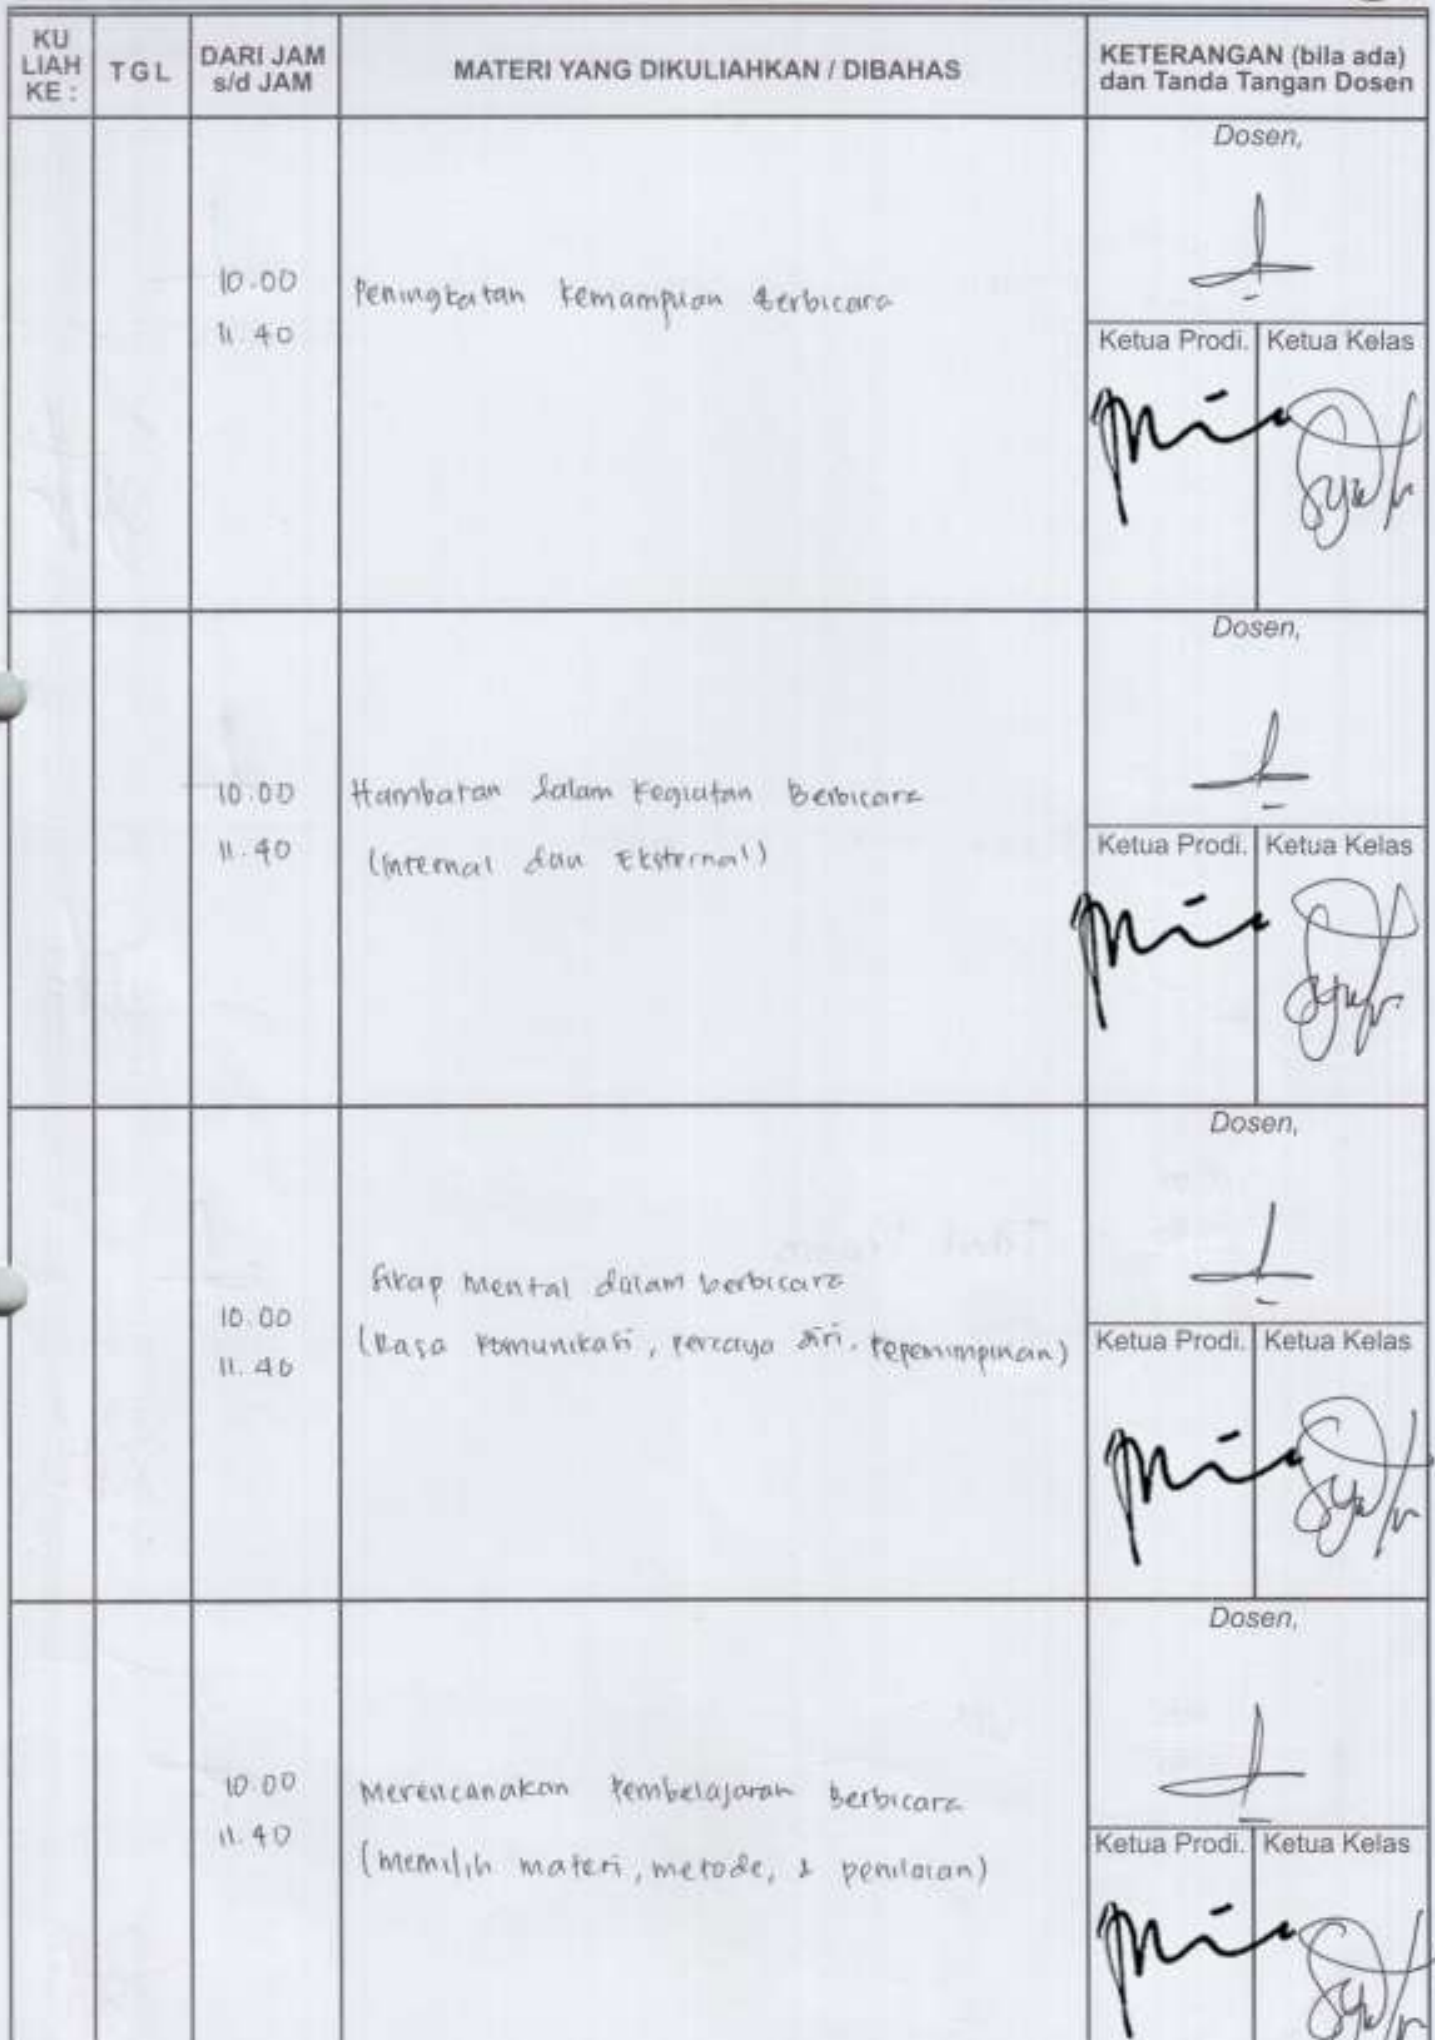 KU LIAH KE : TGL DARI JAM s/d JAM MATERI YANG DIKULIAHKAN / DIBAHAS KETERANGAN (bila ada) dan Tanda Tangan Dosen
Dosen,
10.00 Peningkatan Kemampuan Berbicara
11.40
Ketua Prodi. Ketua Kelas
Dosen,
10.00 Hambatan dalam Kegiatan Berbicara
11.40 (Internal dan Eksternal)
Ketua Prodi. Ketua Kelas
Dosen,
Sikap Mental dalam berbicara
10.00
(Rasa Komunikasi, Percaya diri, Kepemimpinan)
11.40
Ketua Prodi. Ketua Kelas
Dosen,
10.00 Merencanakan Pembelajaran Berbicara
11.40 (Memilih materi, metode, & penilaian)
Ketua Prodi. Ketua Kelas